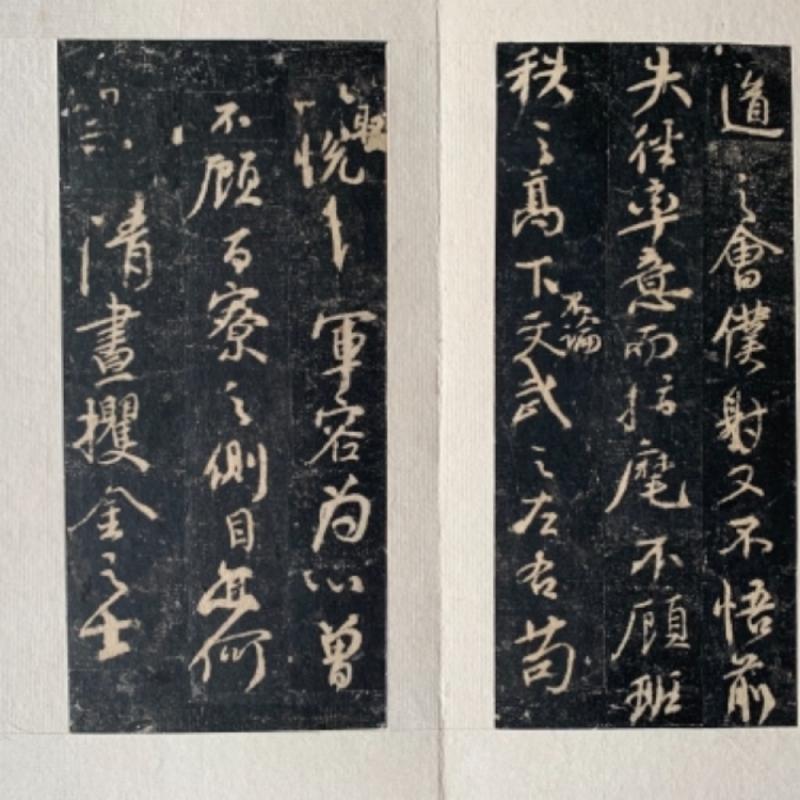 道之會僕射又不悟前
失徑率意而指麾不顧班
秩之高下不論文武之左右苟
取悅軍容為心曾
不顧百寮之側目何
清晝攫金之士